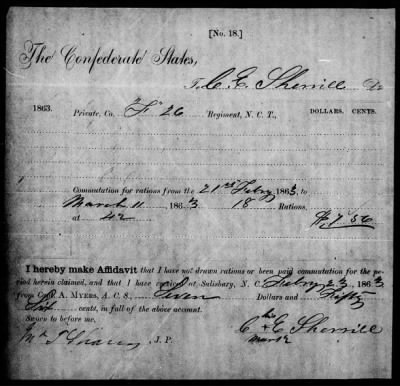 [No. 18.]
The Confederate States,
To C. E. Sherrill Dr
1863. Private, Co. "F" 26 Regiment, N. C. T., DOLLARS. CENTS.
Commutation for rations from the 21st Febry 1863, to
March 11 1863 18 Rations,
at 42 $7 56
I hereby make Affidavit that I have not drawn rations or been paid commutation for the pe-
riod herein claimed, and that I have received at Salisbury, N. C. Febry 23 1863
from Capt. A. MYERS, A. C. S., Seven Dollars and Fifty
Six cents, in full of the above account.
Sworn to before me, his
C + E Sherrill
J. P. mark